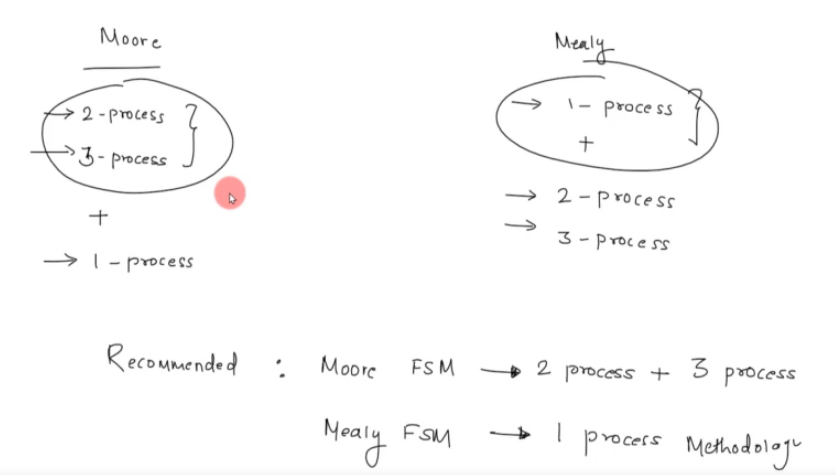 Moore
→ 2-process
→ 3-process
+
→ 1-process
Mealy
→ 1-process
+
→ 2-process
→ 3-process
Recommended : Moore FSM → 2 process + 3 process
Mealy FSM → 1 process Methodology